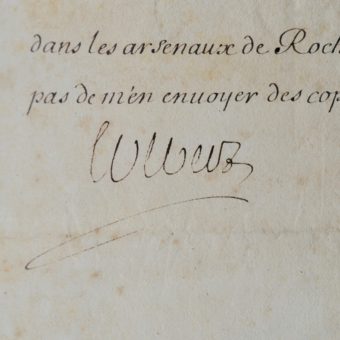 dans les arsenaux de Roch
pas de m'en envoyer des cop
Colbert